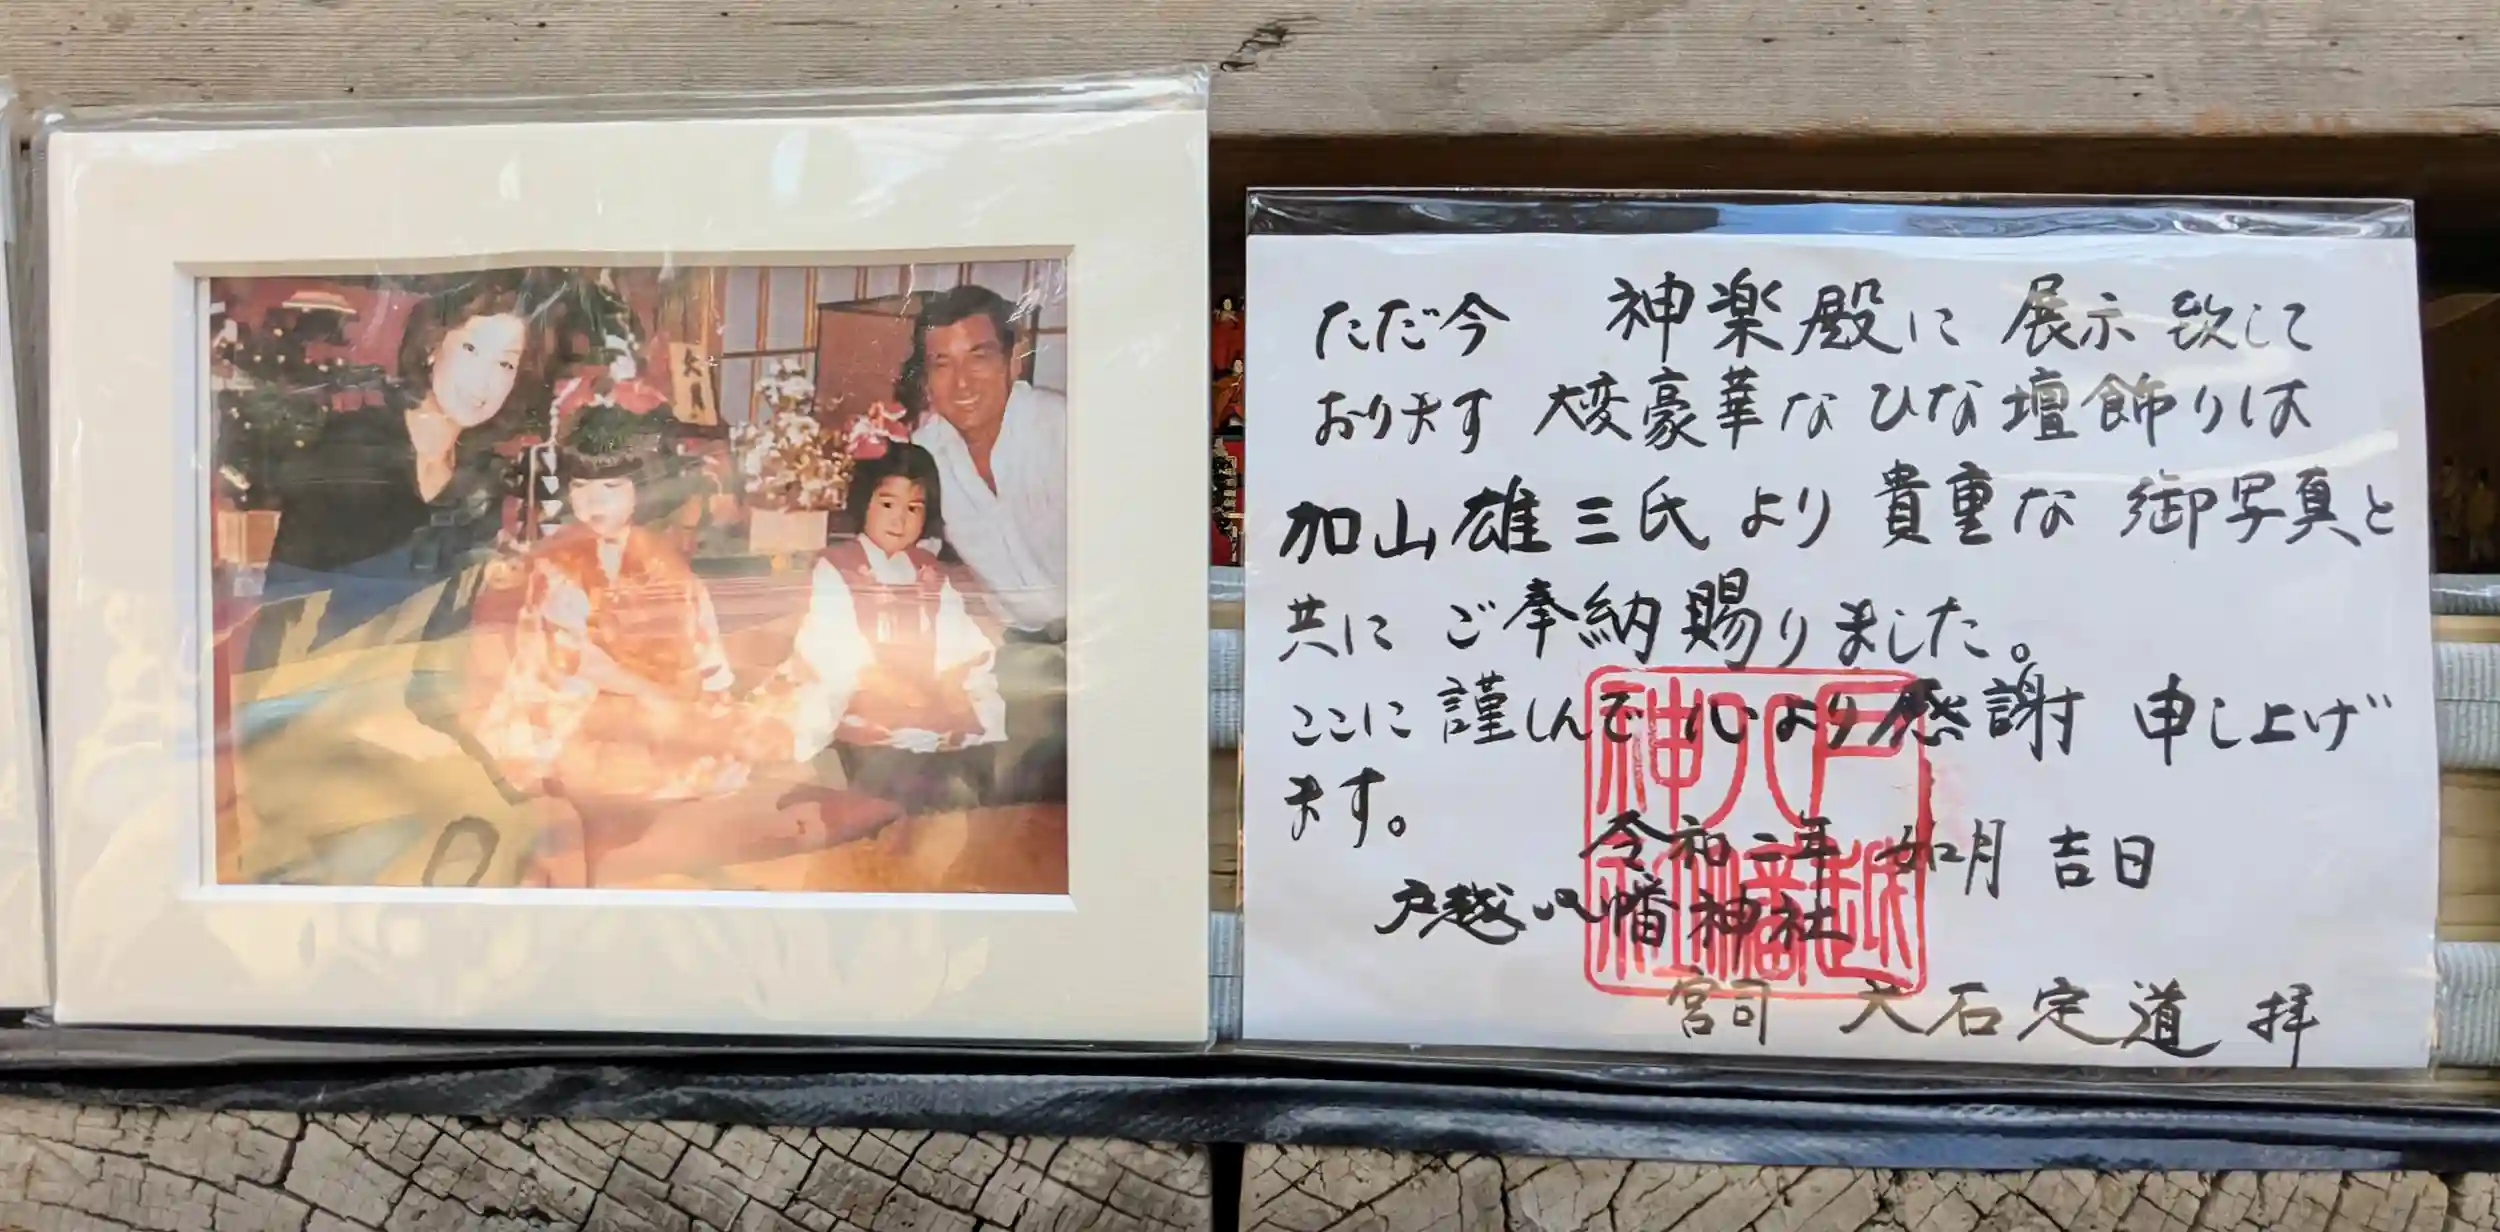 ただ今 神楽殿に展示致して
おります 大変豪華なひな壇飾りは
加山雄三氏より貴重な御写真と
共に ご奉納賜りました。
ここに謹しんで心より感謝申し上げ
ます。
令和二年 如月 吉日
戸越八幡神社
宮司 大石定道 拝